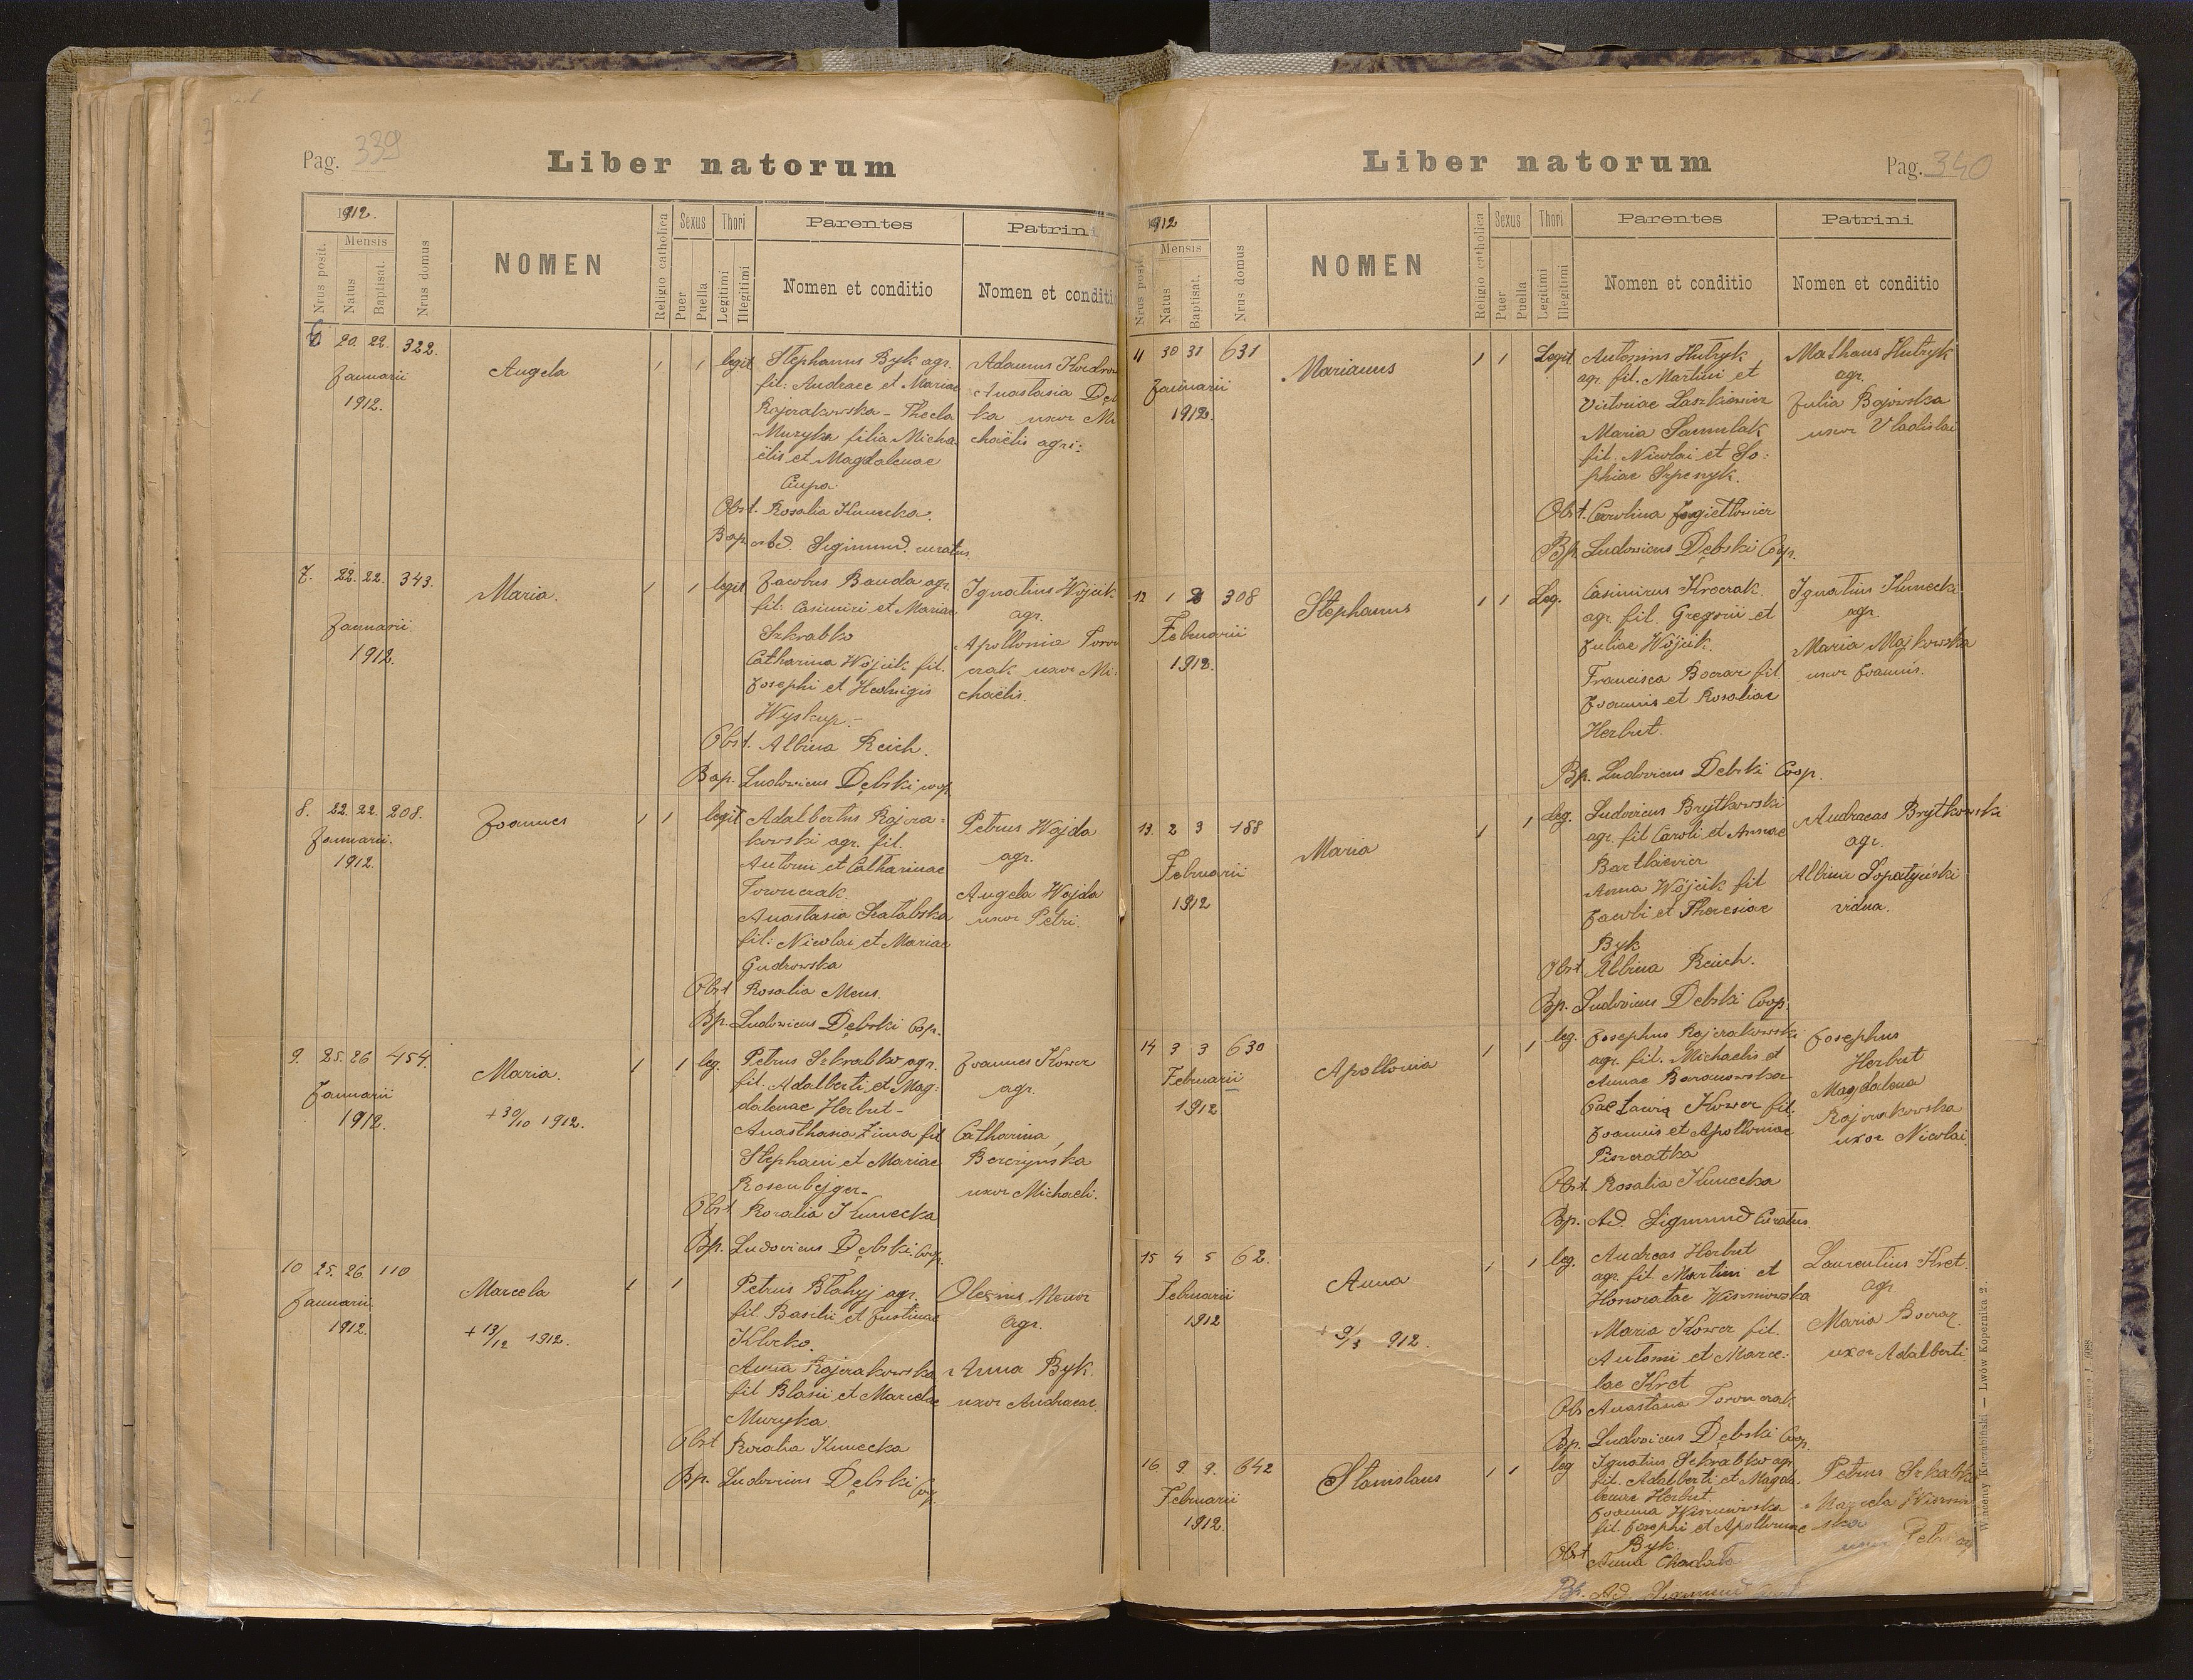 Pag. 339
Liber natorum
1912.
Nrus posit.
Mensis
Natus
Baptisat.
Nrus domus
NOMEN
Religio catholica
Sexus
Puer
Puella
Thori
Legitimi
Illegitimi
Parentes
Nomen et conditio
Patrini
Nomen et conditi
6 20. 22. 322.
Januarii
1912.
Angela
1 1 legit
Stephanus Byk agr.
fil: Andreae et Mariae
Rajzrakowska - Thecla
Muzyka filia Micha-
ëlis et Magdalenae
Ciupa
Obst. Rosalia Kunecka.
Bap. Ad. Sigmund. curatus
Adamus
Anastasia
ka uxor Mi
chaëlis agri:
7. 22. 22. 343.
Januarii
1912.
Maria.
1 1 legit
Jacobus Banda agr.
fil: Casimiri et Mariae
Szkrabko
Catharina Wójcik fil.
Josephi et Hedvigis
Wyskup.-
Obst. Albina Reich.
Bap. Ludovicus Dębski coop.
Ignatius Wójcik
agr.
Apollonia
czak uxor Mi:
chaëlis.
8. 22. 22. 208.
Januarii.
1912.
Joannes
1 1 legit
Adalbertus Rajzra-
kowski agr. fil.
Antonii et Catharinae
Towrczak.
Anastasia
fil: Nicolai et Mariae
Gudrowska
Obst Rosalia Mens.
Bp. Ludovicus Dębski Cop.
Petrus Wajda
agr.
Angela Wajda
uxor Petri.
9. 25. 26 454.
Januarii
1912.
Maria.
+ 30/10 1912.
1 1 leg.
Petrus Szkrabko agr.
fil. Adalberti et Mag:
dalenae Herbut-
Anasthasia Zima fil
Stephani et Mariae
Rosenbejger-
Obst Rosalia Kunecka
Bp. Ludovicus Dębski. Coop.
Joannes Kower
agr.
Catharina
Berezyńska
uxor Michaeli.
10 25. 26. 110
Januarii.
1912.
Marcela
+ 13/12 1912.
1 1
Petrus Błahyj agr.
fil. Basilii et Justinae
Klocko.
Anna Rajzrakowska
fil Blasii et Marcelae
Muzyka
Obst Rosalia Kunecka
Bp. Ludovicus Dębski Coop.
Olexius
agr.
Anna Byk.
uxor Andreae.
Liber natorum
Pag. 340
1912
Nrus posit.
Mensis
Natus
Baptisat.
Nrus domus
NOMEN
Religio catholica
Sexus
Puer
Puella
Thori
Legitimi
Illegitimi
Parentes
Nomen et conditio
Patrini
Nomen et conditio
11 30 31 631
Januarii
1912.
Marianus
1 1 Legit
Antonius Hutryk
agr. fil. Martini et
Victoriae Laszkiewicz
Maria Samulak
fil. Nicolai et So:
phiae Szpenyk.
Obst. Carolina Jagiełłowicz
Bp. Ludovicus Dębski Coop.
Mathaus Hutryk
agr.
Julia Bojowska
uxor Vladislai
12 1 2 308
Februarii
1912.
Stephanus
1 1 Leg.
Casimirus Kroczak
agr. fil. Gregorii et
Juliae Wójcik.
Francisca Boczar fil.
Joannis et Rosaliae
Herbut.
Bp. Ludovicus Dębski Coop.
Ignatius Kunecki
agr.
Maria Majkowska
uxor Joannis.
13. 2 3 188
Februarii
1912
Maria
1 1 leg.
Ludovicus Brytkowski
agr. fil Caroli et Annae
Bartkiewicz
Anna Wójcik fil
Jacobi et Theresiae
Byk
Obst Albina Reich.
Bp. Ludovicus Dębski Coop.
Andreas Brytkowski
agr.
Albina Łopatyński
vidua.
14 3 3 630
Februarii
1912
Apollonia
1 1 leg.
Josephus Rajzrakowski
agr. fil. Michaelis et
Annae Baranowska
Kower fil.
Joannis et Apolloniae
Piszczatka
Obst. Rosalia Kunecka
Bp. Ad. Sigmund Curatus.
Josephus
Herbut
Magdalena
Rajzrakowska
uxor Nicolai
15 4 5 62.
Februarii
1912
Anna
+ 9/3 912.
1 1 leg.
Andreas Herbut
agr. fil. Martini et
Honoratae Wiszniowska
Maria Kower fil.
Antonii et Marce:
lae Kret
Obs Anastasia Towrnczak
Bp. Ludovicus Dębski Coop.
Laurentius Kret.
agr.
Maria Boczar
uxor Adalberti
16. 9. 9. 642
Februarii
1912.
Stanislaus
1 1 leg
Ignatius Szkrabko agr.
fil. Adalberti et Magda-
lenae Herbut.
Joanna Wiszniowska
fil. Josephi et Apolloniae
Byk.
Obst Anna
Bp. Ad. Sigmund
Petrus
ska
uxor Petri
Wincenty Kuczabiński — Lwów Kopernika 2.